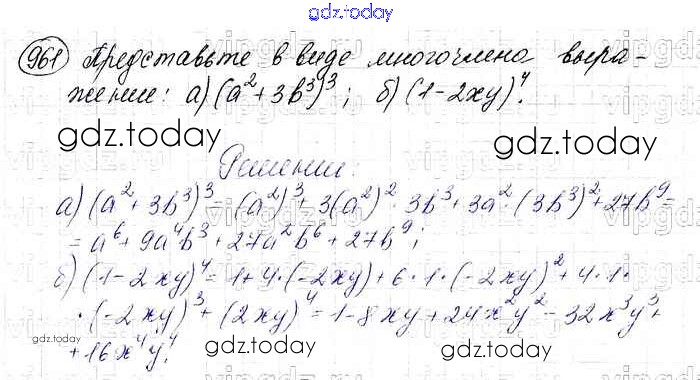 gdz.today
961 Представьте в виде многочлена выра-
жение: а) (a² + 3b³)³; б) (1-2xy)⁴.
gdz.today gdz.today
Решение:
а) (a² + 3b³)³ = (a²)³ + 3(a²)² · 3b³ + 3a² · (3b³)² + 27b⁹ =
= a⁶ + 9a⁴b³ + 27a²b⁶ + 27b⁹;
б) (1-2xy)⁴ = 1 + 4 · (-2xy) + 6 · 1 · (-2xy)² + 4 · 1 ·
· (-2xy)³ + (2xy)⁴ = 1 - 8xy + 24x²y² - 32x³y³ +
gdz.today
+ 16x⁴y⁴.
gdz.today gdz.today